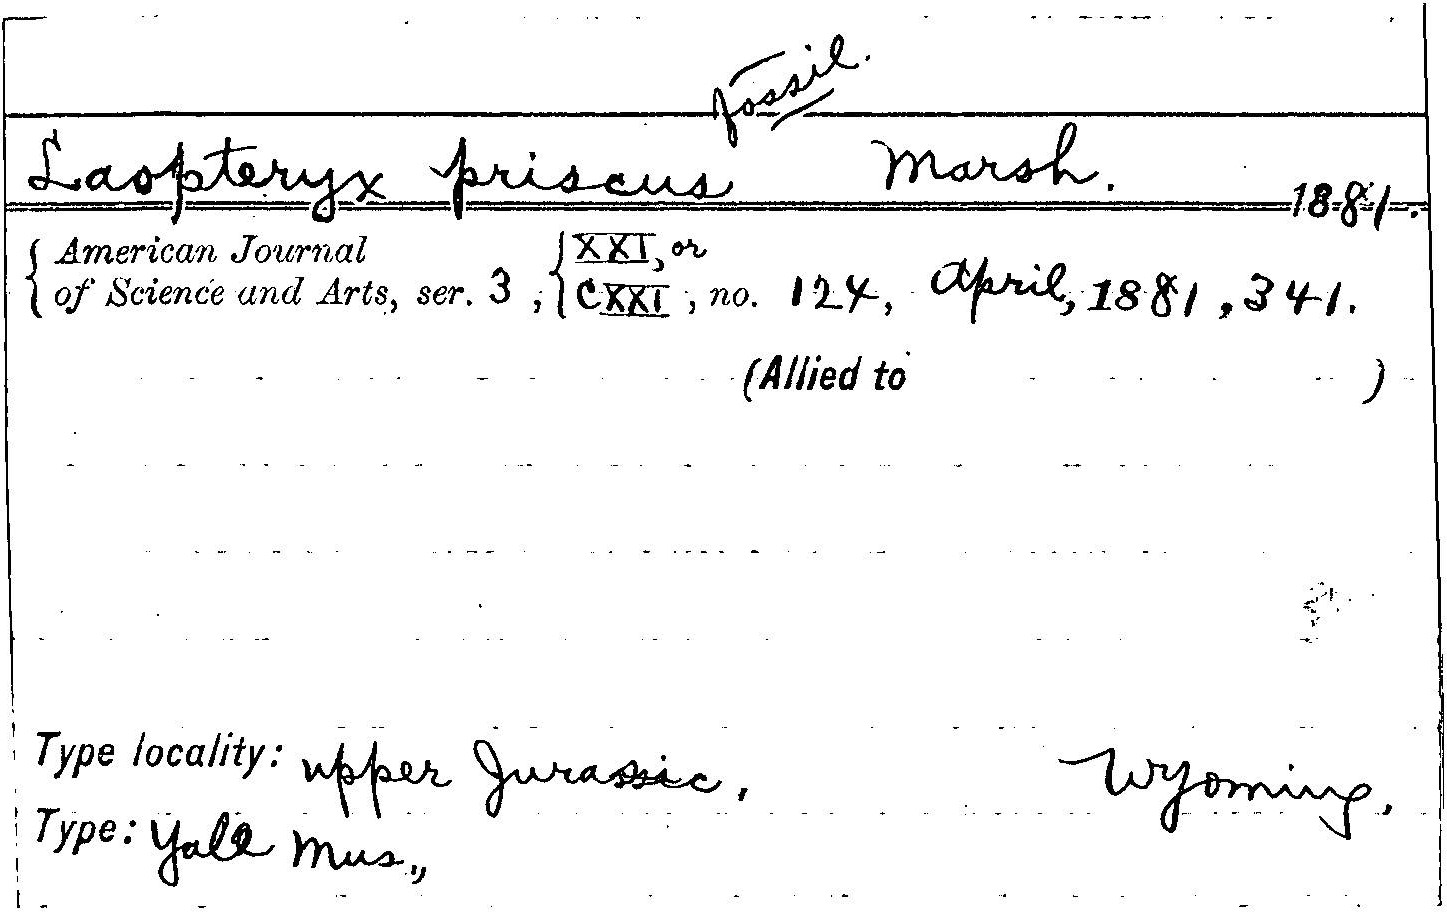 fossil.
Laopteryx priscus Marsh. 1881.
American Journal XXI, or
of Science and Arts, ser. 3, CXXI, no. 124, April, 1881, 341.
(Allied to )
Type locality: upper Jurassic, Wyoming,
Type: Yale Mus.,